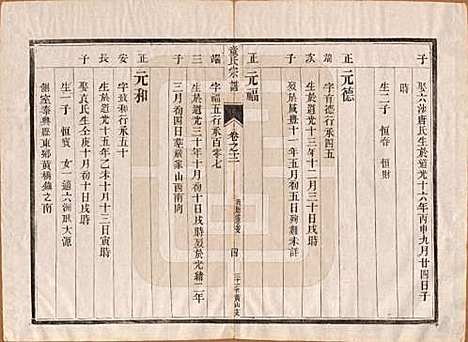 子
娶六洲唐氏生於道光十六年丙申九月廿四日子
時
生二子 恒春 恒財
正 元德
字首德行承四五
次 生於道光十三年十二月十三日戌時
子 歿於咸豐十一年五月初五日殉難未詳
正 元福
端 字福五行承百零七
三 生於道光三十年十月十日戌時歿於光緒二年
子 三月初四日葬
山西南向
正 元和
安 字致和行承五十
長 生於道光十五年乙未十月十三日寅時
子 娶袁氏生壬庚十月初十日戌時
生一子 恒寅 女一適六洲耿大源
側室泰興縣東鄉黃橋鎮之南
童氏宗譜
卷之三
四